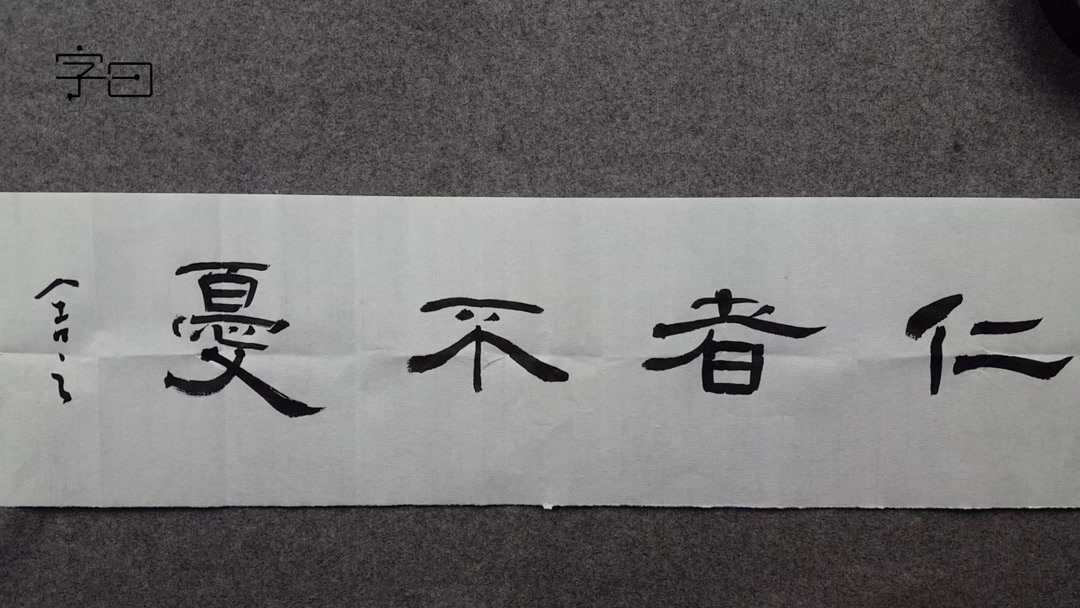 字曰
仁者不憂